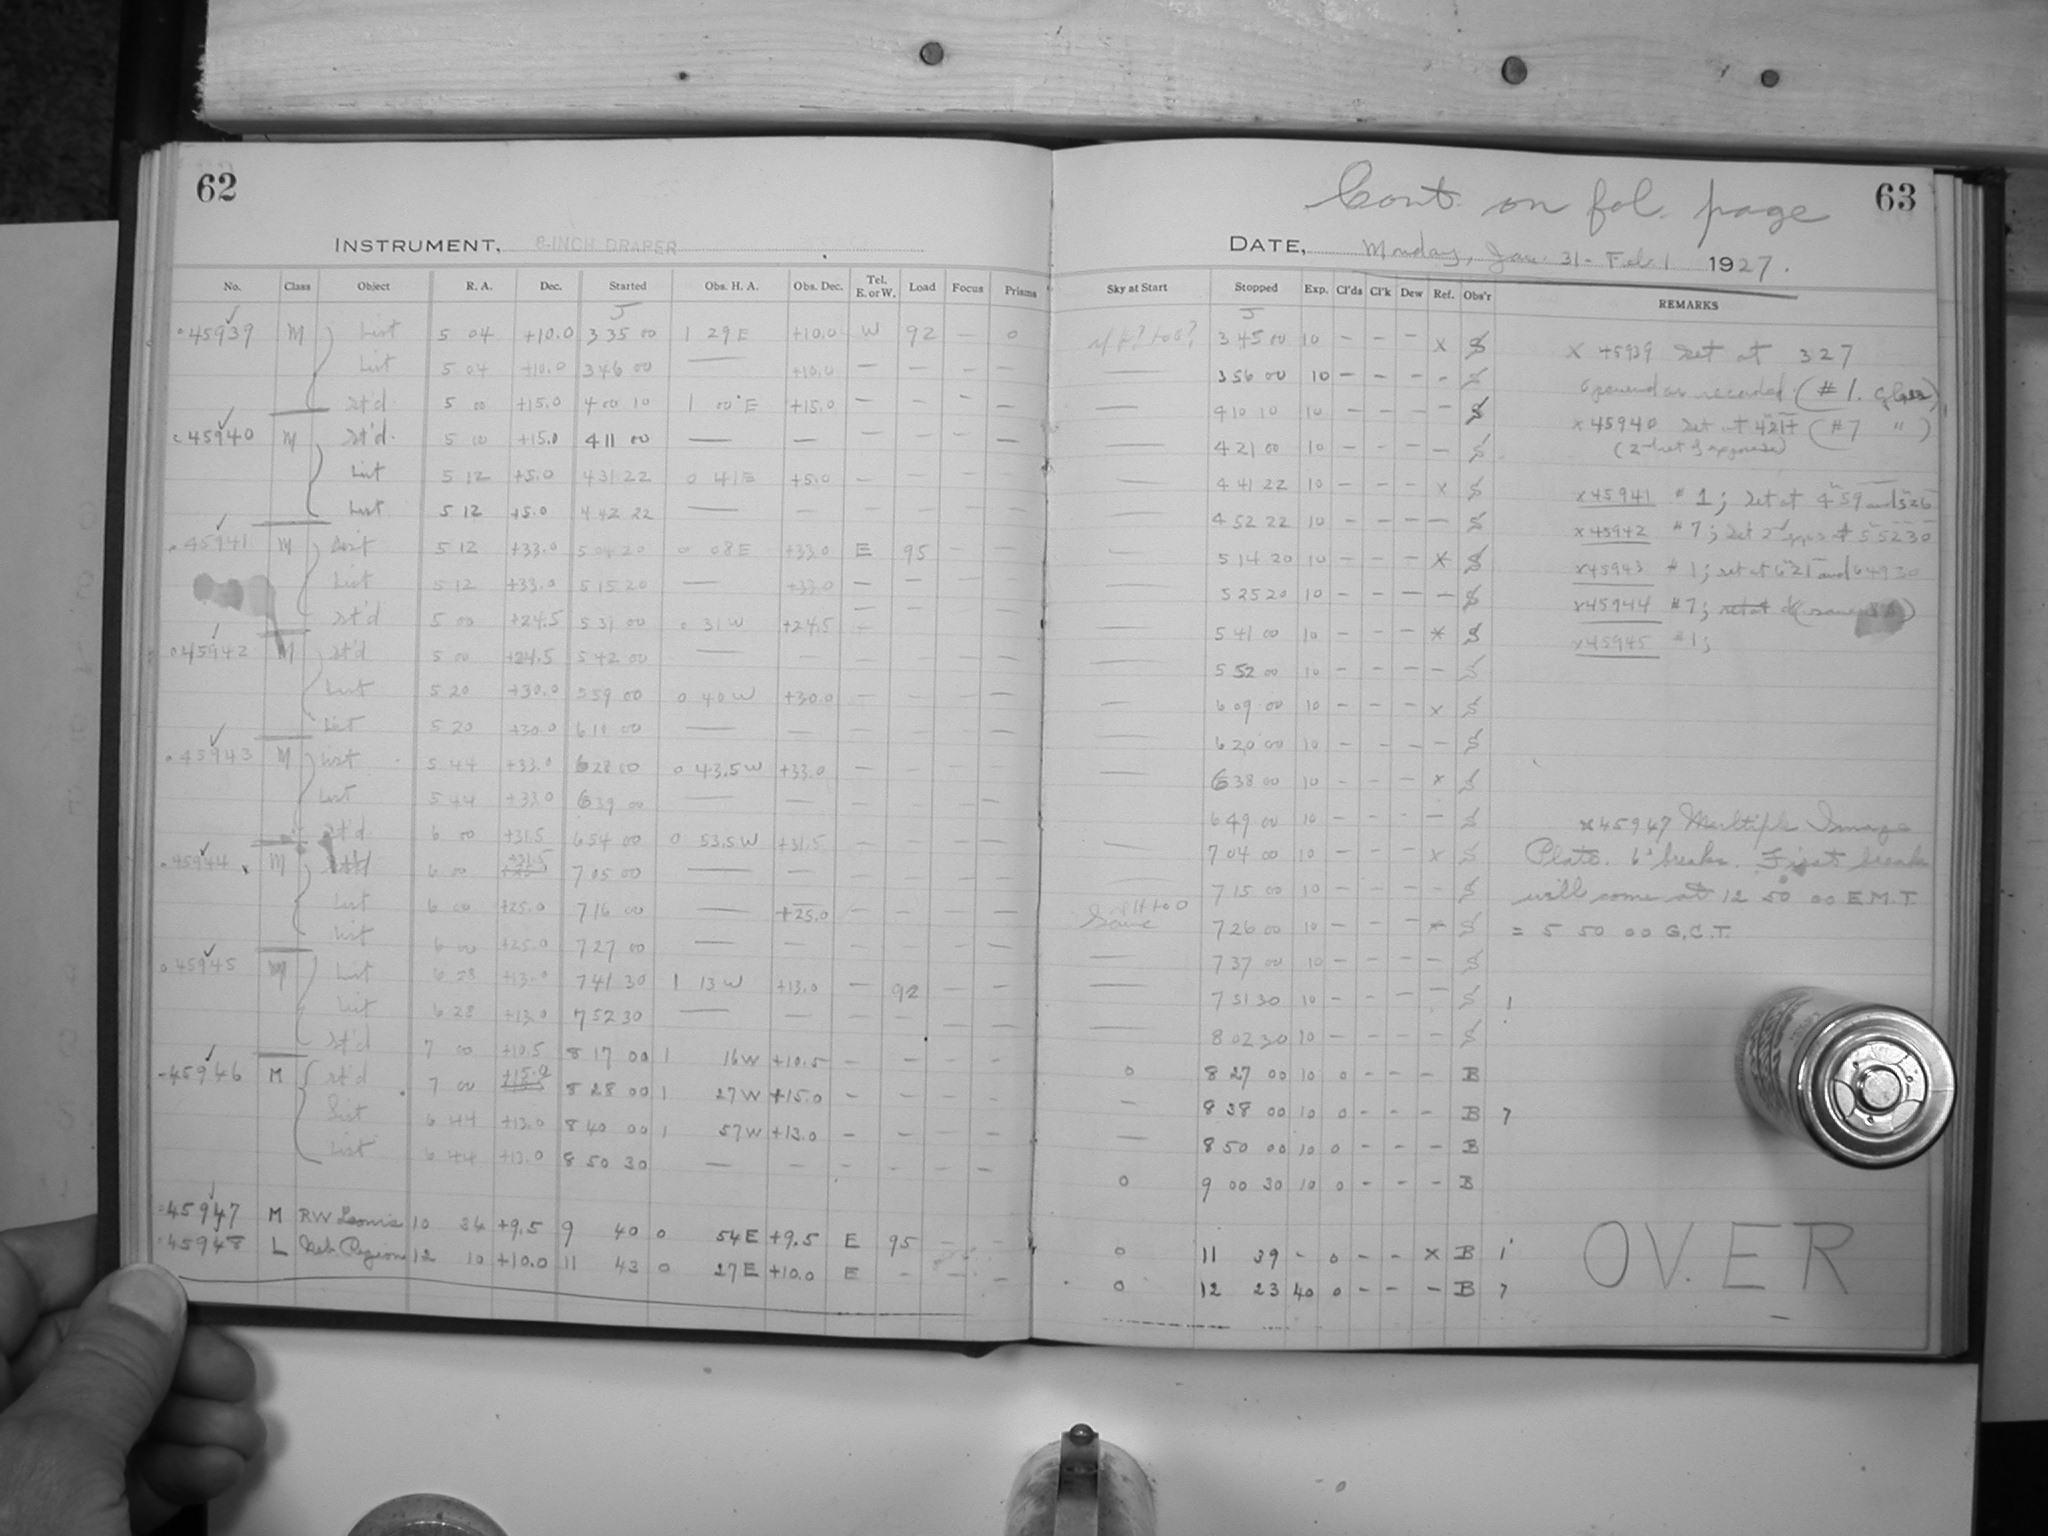 62
INSTRUMENT, 8-INCH DRAPER
No. Class Object R. A. Dec. Started Obs. H. A. Obs. Dec. Tel. E. or W. Load Focus Prisms
45939 M List 5 04 +10.0 3 35 00 1 29 E +10.0 W 92 — 0
List 5 04 +10.0 3 46 00 — +10.0 — — — —
St'd 5 00 +15.0 4 00 10 1 00 E +15.0 — — — —
45940 M St'd. 5 00 +15.0 4 11 00 — — — — — —
List 5 12 +5.0 4 31 22 0 41 E +5.0 — — — —
List 5 12 +5.0 4 42 22 — — — — — —
45941 M List 5 12 +33.0 5 04 20 0 08 E +33.0 E 95 — —
List 5 12 +33.0 5 15 20 — +33.0 — — — —
St'd 5 00 +24.5 5 31 00 0 31 W +24.5 — — — —
45942 M St'd 5 00 +24.5 5 42 00 — — — — — —
List 5 20 +30.0 5 59 00 0 40 W +30.0 — — — —
List 5 20 +30.0 6 10 00 — — — — — —
45943 M List 5 44 +33.0 6 28 00 0 43.5 W +33.0 — — — —
List 5 44 +33.0 6 39 00 — — — — — —
St'd 6 00 +31.5 6 54 00 0 53.5 W +31.5 — — — —
45944 M St'd 6 00 +31.5 7 05 00 — — — — — —
List 6 00 +25.0 7 16 00 — +25.0 — — — —
List 6 00 +25.0 7 27 00 — — — — — —
45945 M List 6 28 +13.0 7 41 30 1 13 W +13.0 — 92 — —
List 6 28 +13.0 7 52 30 — — — — — —
St'd 7 00 +10.5 8 17 00 1 16 W +10.5 — — — —
45946 M St'd 7 00 +15.0 8 28 00 1 27 W +15.0 — — — —
List 6 44 +13.0 8 40 00 1 57 W +13.0 — — — —
List 6 44 +13.0 8 50 30 — — — — — —
45947 M RW Leonis 10 34 +9.5 9 40 0 54 E +9.5 E 95 — —
45948 L Neb. Region 12 10 +10.0 11 43 0 27 E +10.0 E — — —
Cont. on fol. page 63
DATE, Monday, Jan. 31 - Feb. 1 1927.
Sky at Start Stopped Exp. Cl'ds Cl'k Dew Ref. Obs'r REMARKS
3 45 00 10 — — — x S
— 3 56 00 10 — — — — S
— 4 10 10 10 — — — — S
— 4 21 00 10 — — — — S
— 4 41 22 10 — — — x S
— 4 52 22 10 — — — — S
— 5 14 20 10 — — — x S
— 5 25 20 10 — — — — S
— 5 41 00 10 — — — x S
— 5 52 00 10 — — — — S
— 6 09 00 10 — — — x S
— 6 20 00 10 — — — — S
— 6 38 00 10 — — — x S
— 6 49 00 10 — — — — S
— 7 04 00 10 — — — x S
— 7 15 00 10 — — — — S
Same 7 26 00 10 — — — x S
— 7 37 00 10 — — — — S
— 7 51 30 10 — — — — S 1
— 8 02 30 10 — — — — S
0 8 27 00 10 0 — — — B
— 8 38 00 10 0 — — — B 7
— 8 50 00 10 0 — — — B
0 9 00 30 10 0 — — — B
0 11 39 — 0 — — x B 1
0 12 23 40 0 — — — B 7
x 45939 Set at 3 27
opened as recorded (#1. glass)
x 45940 Set at (#7 " )
x 45941 #1; Set at 4 59 and 5 26
x 45942 #7; Set 5 52 30
x 45943 #1; set at 6 21 and 6 49 30
x 45944 #7;
x 45945 #1;
x 45947 Multiple Image
Plate. 6 breaks. First break
will come at 12 50 00 E.M.T.
= 5 50 00 G.C.T.
OVER